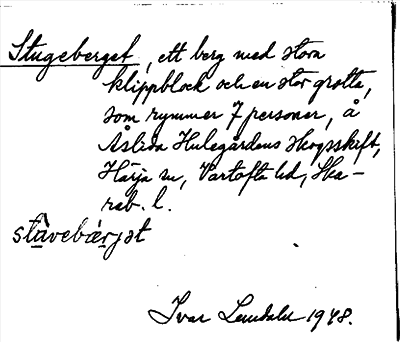 Stugeberget, ett berg med stora
klippblock och en stor grotta,
som rymmer 7 personer, å
Åslida Hulegårdens skogsskift,
Härja sn, Vartofta hd, Ska-
rab. l.
ståvebærjat
Ivar Lundahl 1948.